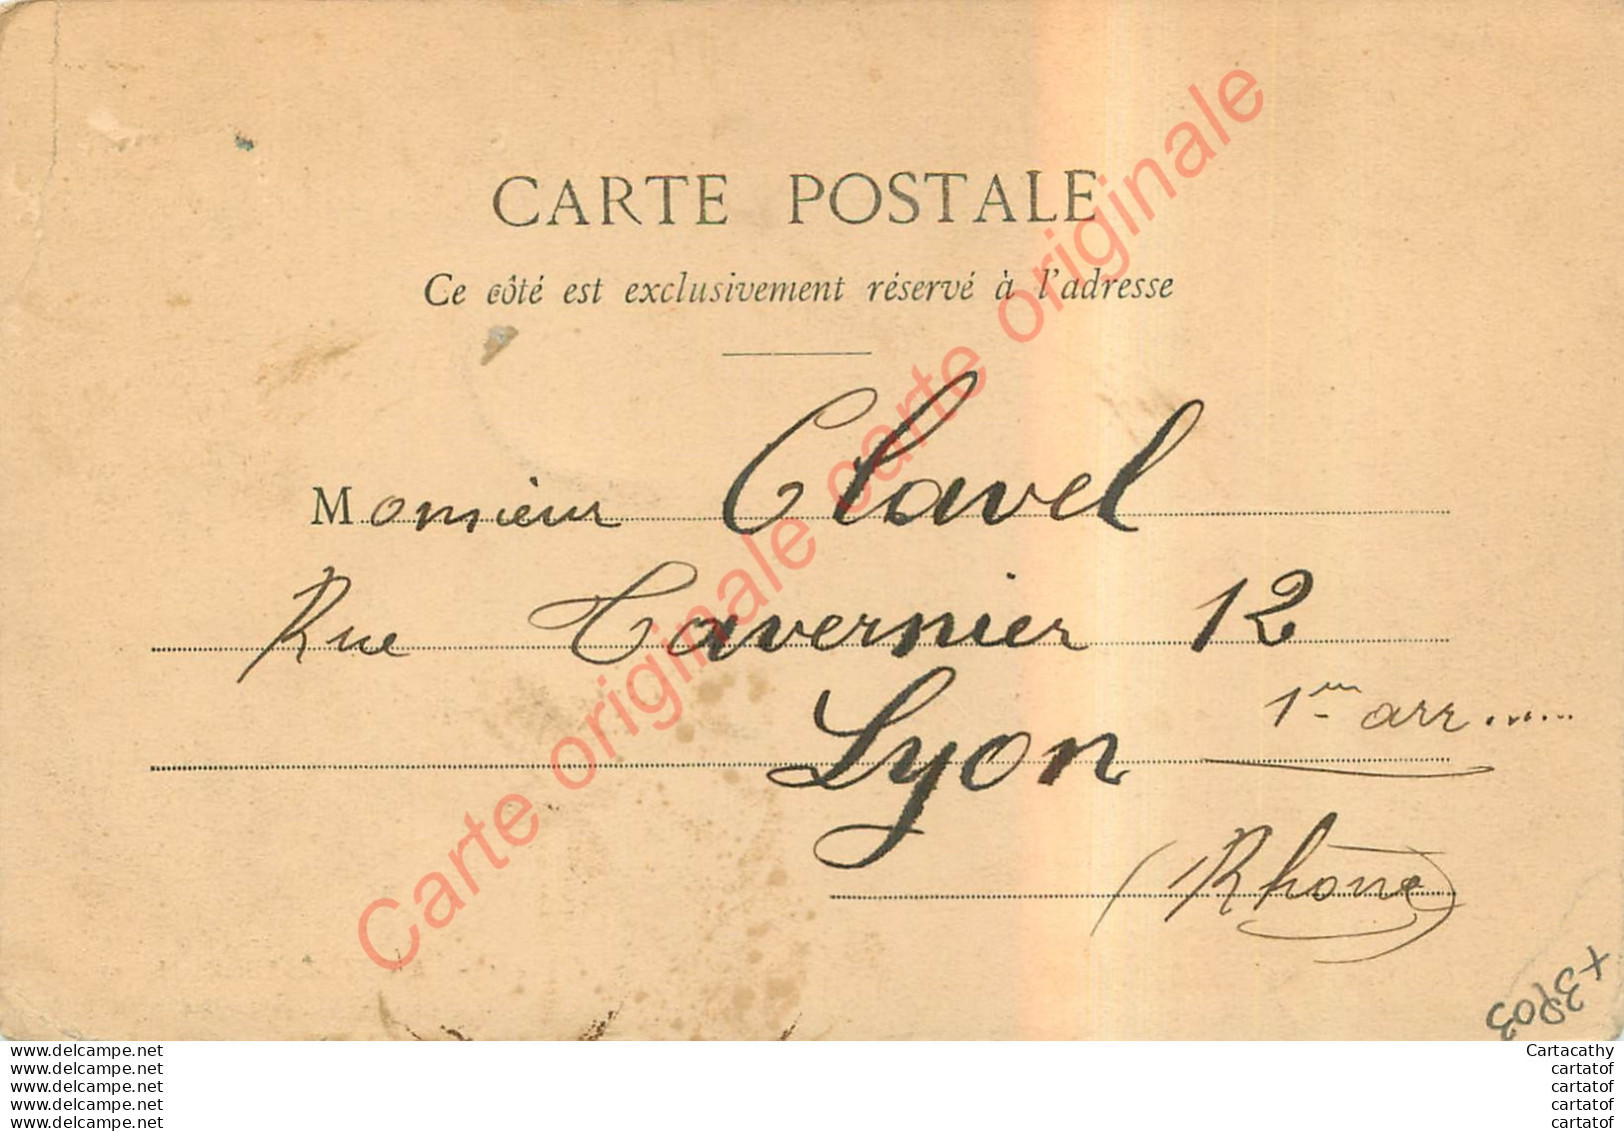 CARTE POSTALE
Ce côté est exclusivement réservé à l'adresse
Monsieur Clavel
Rue Tavernier 12
Lyon 1er arr.....
(Rhône)
Carte originale carte originale
www.delcampe.net
www.delcampe.net
www.delcampe.net
www.delcampe.net
www.delcampe.net
Cartacathy
cartatof
cartatof
cartatof
cartatof